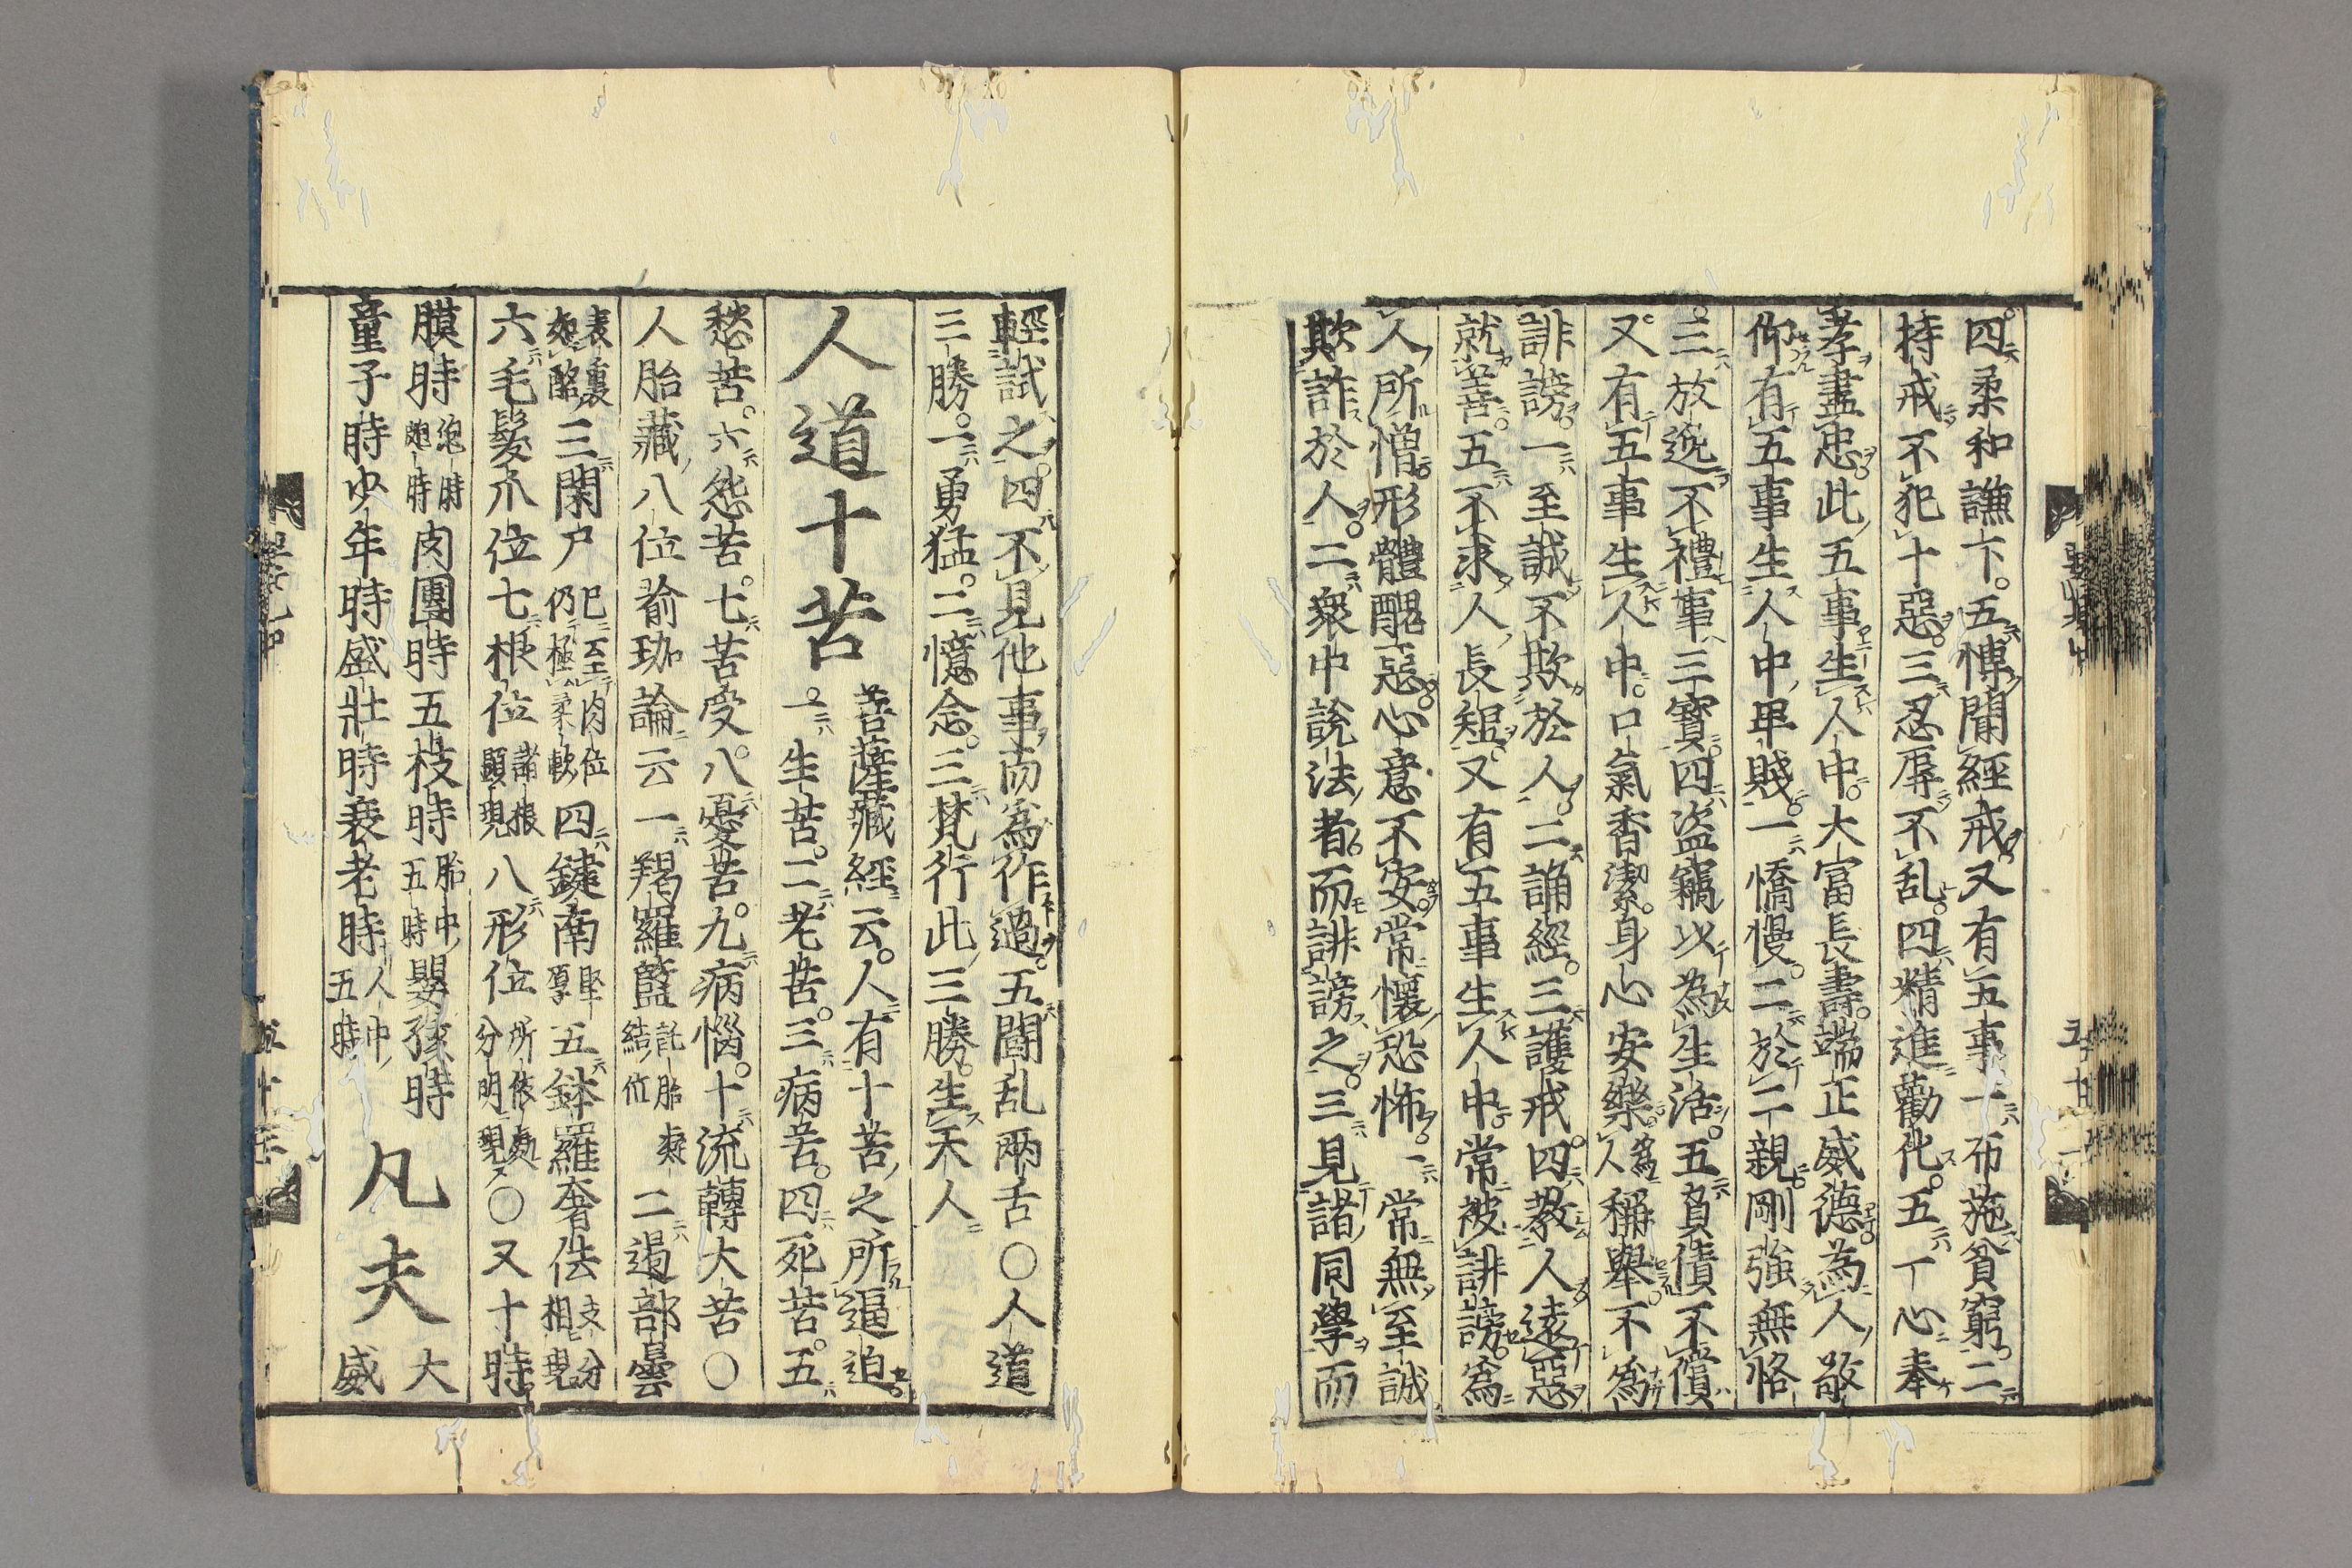 四柔和謙卞五慱聞經戒又有五事一布施貧窮二
持戒不犯十惡三忍辱不乱四精進勸化五一心奉
孝盡忠此五事生人中大富長壽端正威德為人敬
仰有五事生人中卑賤一憍慢二於二親剛強無恪
三放逸不禮事三寳四盗竊以為生活五負債不償
又有五事生人中口氣香潔身心安樂為人稱舉不為
誹謗一至誠不欺於人二誦經三護戒四教人遠惡
就善五不求人長短又有五事生人中常被誹謗為
人所憎形體醜惡心意不安常懷恐怖一常無至誠
欺詐於人二衆中說法者而誹謗之三見諸同學而
輕試之四不見他事而為作過五鬪乱兩舌〇人道
三勝一勇猛二憶念三梵行此三勝生天人
人道十苦
菩薩藏經云人有十苦之所逼迫
一生苦二老苦三病苦四死苦五
愁苦六怨苦七苦受八憂苦九病惱十流轉大苦〇
人胎藏八位瑜珈論云一羯羅藍託胎結位二遏部曇
表裏如酪三閉尸已至肉位仍極柔軟四鍵南堅厚五鉢羅奢佉支分相現
六毛髮爪位七根位諸根顯現八形位所依處分明現〇又十時
膜時泡時皰時肉團時五枝時胎中五時嬰孩時
童子時少年時盛壯時衰老時人中五時
凡夫
大
威